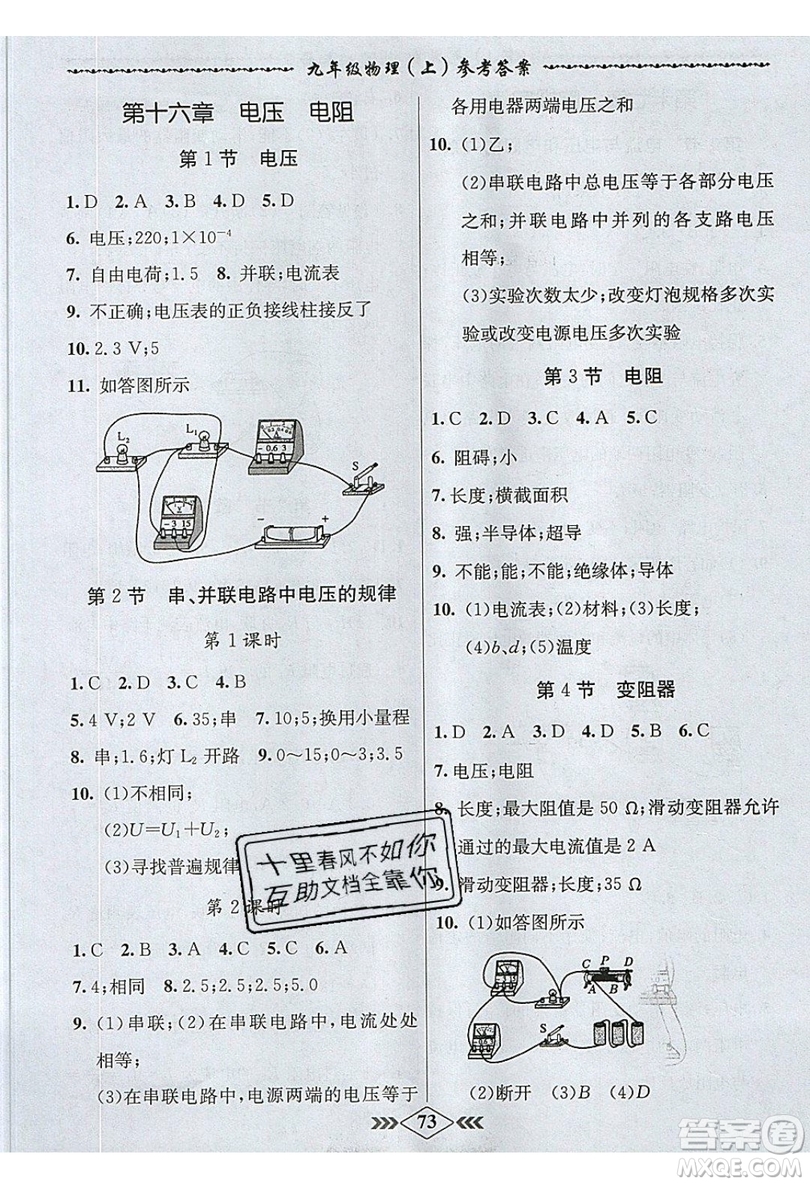 九年级物理(上)参考答案
第十六章 电压 电阻
第1节 电压
1.D 2.A 3.B 4.D 5.D
6. 电压;220;1×10⁻⁴
7. 自由电荷;1.5 8. 并联;电流表
9. 不正确;电压表的正负接线柱接反了
10. 2.3 V;5
11. 如答图所示
L₂
L₁
A
-0.6 3
S
V
-3 15
-
+
第2节 串、并联电路中电压的规律
第1课时
1.C 2.D 3.C 4.B
5.4 V;2 V 6.35;串 7.10;5;换用小量程
8. 串;1.6;灯 L₂ 开路 9.0～15;0～3;3.5
10. (1)不相同;
(2)U=U₁+U₂;
(3)寻找普遍规律
第2课时
1.C 2.D 3.A 4.A 5.C 6.A
7.4;相同 8.2.5;2.5;2.5;5.0
9. (1)串联;(2)在串联电路中,电流处处
相等;
(3)在串联电路中,电源两端的电压等于
各用电器两端电压之和
10. (1)乙;
(2)串联电路中总电压等于各部分电压
之和;并联电路中并列的各支路电压
相等;
(3)实验次数太少;改变灯泡规格多次实
验或改变电源电压多次实验
第3节 电阻
1.C 2.D 3.C 4.A 5.C
6. 阻碍;小
7. 长度;横截面积
8. 强;半导体;超导
9. 不能;能;不能;绝缘体;导体
10. (1)电流表;(2)材料;(3)长度;
(4)b、d;(5)温度
第4节 变阻器
1.D 2.A 3.D 4.D 5.B 6.C
7. 电压;电阻
8. 长度;最大阻值是 50 Ω;滑动变阻器允许
通过的最大电流值是 2 A
9. 滑动变阻器;长度;35 Ω
10. (1)如答图所示
C P D
A B
S
(2)断开 (3)B (4)D
十里春风不如你
互助文档全靠你
73
答案圈
MXQE.COM